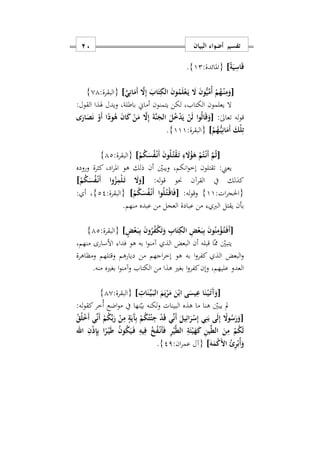 تفسير أضواء البيان ٢٠
قَاسِيَةً] {المائدة:١٣}.
[وَمِنْهُمْ أُمِّيُّونَ لَا يَعْلَمُونَ الْكِتَابَ إِلَّا أَمَانِيَّ] {البقرة:٧٨}
لا يعلمون الكتاب، لكن يتمنون أماني باطلة، ويدل لهذا القول:
قوله تعالى: [وَقَالُوا لَنْ يَدْخُلَ الْجَنَّةَ إِلَّا مَنْ كَانَ هُودًا أَوْ نَصَارَى
تِلْكَ أَمَانِيُّهُمْ] {البقرة:١١١}.
[ثُمَّ أَنْتُمْ هَؤُلَاءِ تَقْتُلُونَ أَنْفُسَكُمْ] {البقرة:٨٥}
يعني: تقتلون إخوانكم، ويبيّن أن ذلك هو المراد، كثرة وروده
كذلك في القرآن نحو قوله: [وَلَا تَلْمِزُوا أَنْفُسَكُمْ]
{الحجرات:١١} وقوله: [فَاقْتُلُوا أَنْفُسَكُمْ] {البقرة:٥٤}، أي:
بأن يقتل البريء من عبادة العجل من عبده منهم.
[أَفَتُؤْمِنُونَ بِبَعْضِ الْكِتَابِ وَتَكْفُرُونَ بِبَعْضٍ] {البقرة:٨٥}
يتبيّن ممّا قبله أن البعض الذي آمنوا به هو فداء الأسارى منهم،
والبعض الذي كفروا به هو إخراجهم من ديارهم وقتلهم ومظاهرة
العدو عليهم، وإن كفروا بغير هذا من الكتاب وآمنوا بغيره منه.
[وَآَتَيْنَا عِيسَى ابْنَ مَرْيَمَ الْبَيِّنَاتِ] {البقرة:٨٧}
لم يبيّن هنا ما هذه البينات ولكنه بيّنها في مواضع أُخر كقوله:
[وَرَسُولًا إِلَى بَنِي إِسْرَائِيلَ أَنِّي قَدْ جِئْتُكُمْ بِآَيَةٍ مِنْ رَبِّكُمْ أَنِّي أَخْلُقُ
لَكُمْ مِنَ الطِّينِ كَهَيْئَةِ الطَّيْرِ فَأَنْفُخُ فِيهِ فَيَكُونُ طَيْرًا بِإِذْنِ اللهِ
وَأُبْرِئُ الْأَكْمَهَ] {آل عمران:٤٩}.